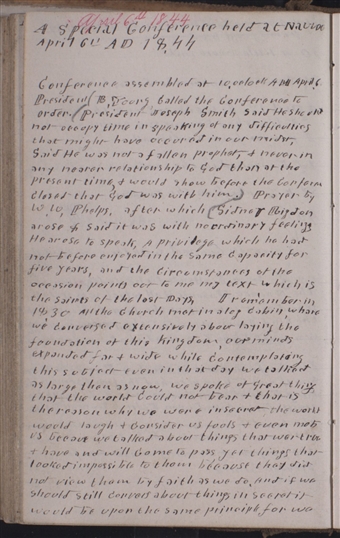 April 6th 1844
A Special Conference held at Nauvoo
April 6th AD 18,44
Conference assembled at 10,oclock AM April 6
President B, Young Called the Conference to
order, President Joseph Smith Said He should
not occupy time in speaking of any difficulties
that might have occured in our midst,
Said He was not a fallen prophet, & never in
any nearer relationship to God than at the
present time, & would show before the Conferen
Closed that God was with him, Prayer by
W, W, Phelps, after which Sidney Rigdon
arose & said it was with no ordinary feeling
He arose to speak, A privilege which he had
not before enjoyed in the same Capacity for
five years, and the Circumstances of the
occasion points out to me my text which is
the saints of the last Days, I remember in
1830 All the Church met in a log Cabin, whare
we Conversed extensively about laying the
foundation of this kingdom, our minds
expanded far & wide while Contemplating
this subject even in that day we talked
as large than as now, we spoke of great things
that the world Could not bear & that is
the reason why we were in secret the world
would laugh & Consider us fools & even
us because we talked about things that wer true
& have and will Come to pass, yet things that
looked impossible to them because they did
not view them by faith as we do, and if we
should still Convers about things in secret it
would be upon the same principle, for we